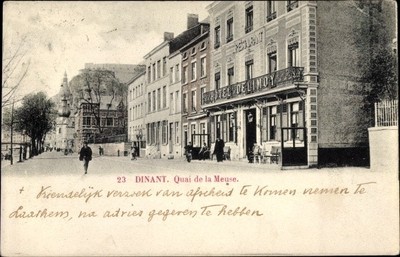 RESTAURANT
HÔTEL DELIMOY
23 DINANT. Quai de la Meuse.
+ Vriendelijk verzoek van afscheid te komen nemen te
Laarhens, na advies gegeven te hebben